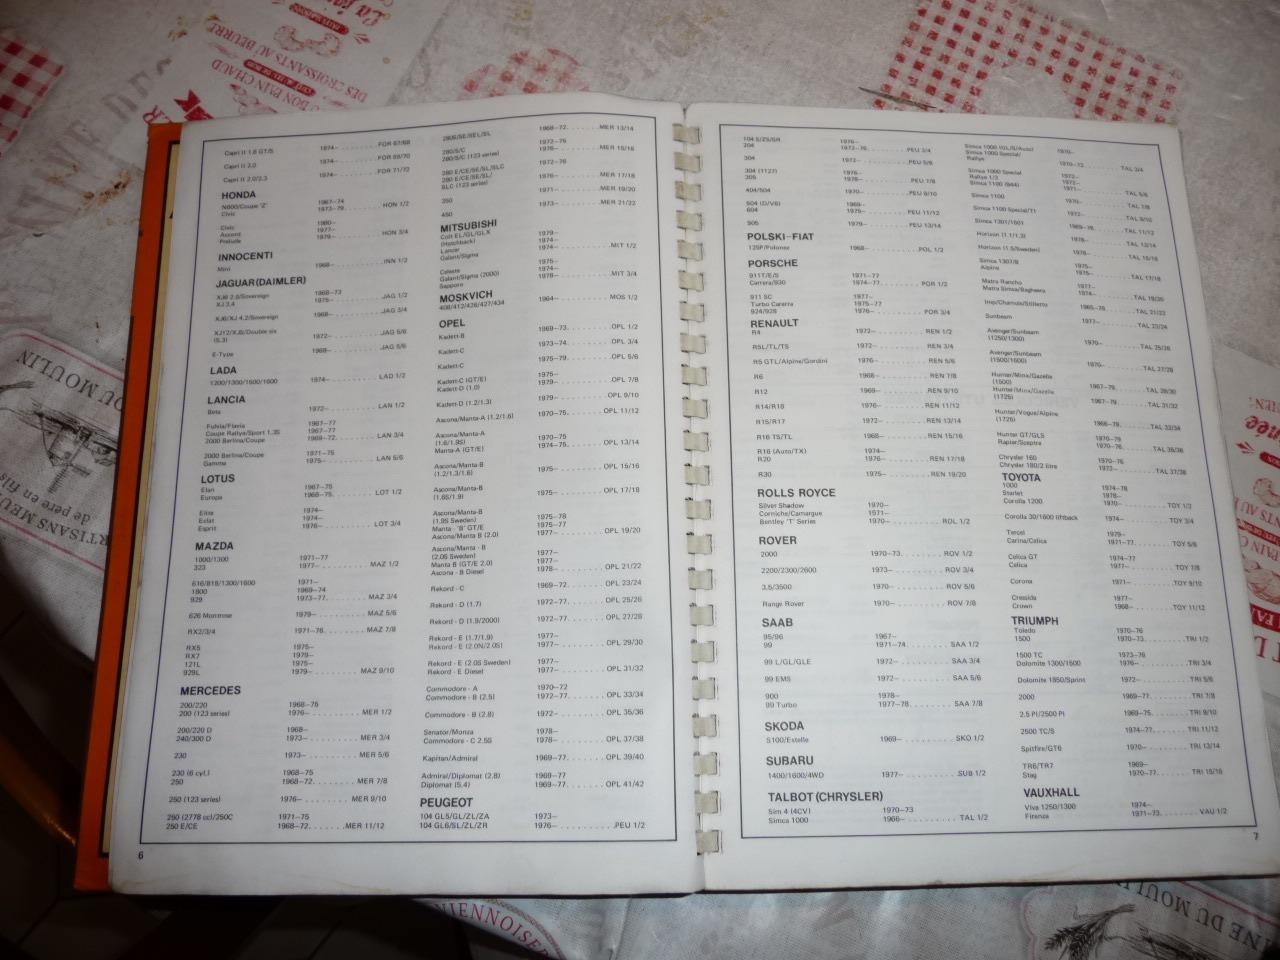 Capri II 1.6 GT/S 1974– FOR 67/68
Capri II 2.0 1974– FOR 69/70
Capri II 2.0/2.3 1974– FOR 71/72
HONDA
N600/Coupe 'Z' 1967–74
Civic 1973–79 HON 1/2
Civic 1980–
Accord 1977–
Prelude 1979– HON 3/4
INNOCENTI
Mini 1968– INN 1/2
JAGUAR (DAIMLER)
XJ6 2.8/Sovereign 1968–73
XJ 3.4 1975– JAG 1/2
XJ6/XJ 4.2/Sovereign 1968– JAG 3/4
XJ12/XJS/Double six
(5.3) 1972– JAG 5/6
E-Type 1968– JAG 5/6
LADA
1200/1300/1500/1600 1974– LAD 1/2
LANCIA
Beta 1972– LAN 1/2
Fulvia/Flavia 1967–77
Coupe Rallye/Sport 1.3S 1967–77
2000 Berlina/Coupe 1969–72 LAN 3/4
2000 Berlina/Coupe 1971–75
Gamma 1975– LAN 5/6
LOTUS
Elan 1967–75
Europa 1968–75 LOT 1/2
Elite 1974–
Eclat 1974–
Esprit 1976– LOT 3/4
MAZDA
1000/1300 1971–77
323 1977– MAZ 1/2
616/818/1300/1600 1971–
1800 1969–74
929 1973–77 MAZ 3/4
626 Montrose 1979– MAZ 5/6
RX2/3/4 1971–76 MAZ 7/8
RX5 1975–
RX7 1979–
121L 1975–
929L 1979– MAZ 9/10
MERCEDES
200/220 1968–75
200 (123 series) 1976– MER 1/2
200/220 D 1968–
240/300 D 1973– MER 3/4
230 1973– MER 5/6
230 (6 cyl.) 1968–75
250 1968–72 MER 7/8
250 (123 series) 1976– MER 9/10
250 (2778 cc)/250C 1971–75
250 E/CE 1968–72 MER 11/12
6
280S/SE/SEL/SL 1968–72 MER 13/14
280/S/C 1972–76
280/S/C (123 series) 1976– MER 15/16
280 E/CE/SE/SL/SLC 1972–76
280 E/CE/SE/SL/
SLC (123 series) 1976– MER 17/18
350 1971– MER 19/20
450 1973– MER 21/22
MITSUBISHI
Colt EL/GL/GLX
(Hatchback) 1979–
Lancer 1974–
Galant/Sigma 1974– MIT 1/2
Celeste 1975–
Galant/Sigma (2000) 1974–
Sapporo 1978– MIT 3/4
MOSKVICH
408/412/426/427/434 1964– MOS 1/2
OPEL
Kadett-B 1969–73 OPL 1/2
Kadett-C 1973–74 OPL 3/4
Kadett-C 1975–79 OPL 5/6
Kadett-C (GT/E) 1975–
Kadett-D (1.0) 1979– OPL 7/8
Kadett-D (1.2/1.3) 1979– OPL 9/10
Ascona/Manta-A (1.2/1.6) 1970–75 OPL 11/12
Ascona/Manta-A
(1.6/1.9S) 1970–75
Manta-A (GT/E) 1974–75 OPL 13/14
Ascona/Manta-B
(1.2/1.3/1.6) 1975– OPL 15/16
Ascona/Manta-B
(1.6S/1.9) 1975– OPL 17/18
Ascona/Manta-B
(1.9S Sweden) 1975–78
Manta - 'B' GT/E 1975–77
Ascona/Manta B (2.0) 1977– OPL 19/20
Ascona/Manta - B
(2.0S Sweden) 1977–
Manta B (GT/E 2.0) 1977–
Ascona - B Diesel 1978– OPL 21/22
Rekord - C 1969–72 OPL 23/24
Rekord - D (1.7) 1972–77 OPL 25/26
Rekord - D (1.9/2000) 1972–77 OPL 27/28
Rekord - E (1.7/1.9) 1977–
Rekord - E (2.0N/2.0S) 1977– OPL 29/30
Rekord - E (2.0S Sweden) 1977–
Rekord - E Diesel 1977– OPL 31/32
Commodore - A 1970–72
Commodore - B (2.5) 1972–77 OPL 33/34
Commodore - B (2.8) 1972– OPL 35/36
Senator/Monza 1978–
Commodore - C 2.5S 1978– OPL 37/38
Kapitan/Admiral 1969–77 OPL 39/40
Admiral/Diplomat (2.8) 1969–77
Diplomat (5.4) 1969–77 OPL 41/42
PEUGEOT
104 GL5/GL/ZL/ZA 1973–
104 GL6/SL/ZL/ZR 1976– PEU 1/2
104 S/ZS/SR 1976–
204 1972–76 PEU 3/4
304 1972– PEU 5/6
304 (1127) 1976–
305 1978– PEU 7/8
404/504 1970– PEU 9/10
504 (D/V6) 1969–
604 1975– PEU 11/12
505 1979– PEU 13/14
POLSKI–FIAT
125P/Polonez 1968– POL 1/2
PORSCHE
911T/E/S 1971–77
Carrera/930 1974–77 POR 1/2
911 SC 1977–
Turbo Carerra 1975–77
924/928 1976– POR 3/4
RENAULT
R4 1972– REN 1/2
R5L/TL/TS 1972– REN 3/4
R5 GTL/Alpine/Gordini 1976– REN 5/6
R6 1968– REN 7/8
R12 1969– REN 9/10
R14/R18 1976– REN 11/12
R15/R17 1972– REN 13/14
R16 TS/TL 1968– REN 15/16
R16 (Auto/TX) 1974–
R20 1976– REN 17/18
R30 1975– REN 19/20
ROLLS ROYCE
Silver Shadow 1970–
Corniche/Camargue 1971–
Bentley 'T' Series 1970– ROL 1/2
ROVER
2000 1970–73 ROV 1/2
2200/2300/2600 1973– ROV 3/4
3.5/3500 1970– ROV 5/6
Range Rover 1970– ROV 7/8
SAAB
95/96 1967–
99 1971–74 SAA 1/2
99 L/GL/GLE 1972– SAA 3/4
99 EMS 1972– SAA 5/6
900 1978–
99 Turbo 1977–78 SAA 7/8
SKODA
S100/Estelle 1969– SKO 1/2
SUBARU
1400/1600/4WD 1977– SUB 1/2
TALBOT (CHRYSLER)
Sim 4 (4CV) 1970–73
Simca 1000 1966– TAL 1/2
Simca 1000 (GL/S/Auto) 1970–
Simca 1000 Special/
Rallye 1970–72 TAL 3/4
Simca 1000 Special 1972–
Rallye 1/2 1972–
Simca 1100 (944) 1971– TAL 5/6
Simca 1100 1970– TAL 7/8
Simca 1100 Special/TI 1972– TAL 9/10
Simca 1301/1501 1969–76 TAL 11/12
Horizon (1.1/1.3) 1978– TAL 13/14
Horizon (1.5/Sweden) 1978– TAL 15/16
Simca 1307/8 1975–
Alpine 1975– TAL 17/18
Matra Rancho 1977–
Matra Simca/Bagheera 1974– TAL 19/20
Imp/Chamois/Stiletto 1965–76 TAL 21/22
Sunbeam 1977– TAL 23/24
Avenger/Sunbeam
(1250/1300) 1970– TAL 25/26
Avenger/Sunbeam
(1500/1600) 1970– TAL 27/28
Hunter/Minx/Gazelle
(1500) 1967–79 TAL 29/30
Hunter/Minx/Gazelle
(1725) 1967–79 TAL 31/32
Hunter/Vogue/Alpine
(1725) 1966–79 TAL 33/34
Hunter GT/GLS 1970–79
Rapier/Sceptre 1970–76 TAL 35/36
Chrysler 160 1970–76
Chrysler 180/2 litre 1973– TAL 37/38
TOYOTA
1000 1974–78
Starlet 1978–
Corolla 1200 1970– TOY 1/2
Corolla 30/1600 liftback 1974– TOY 3/4
Tercel 1979–
Carina/Celica 1971–77 TOY 5/6
Celica GT 1974–77
Celica 1977– TOY 7/8
Corona 1971– TOY 9/10
Cressida 1977–
Crown 1968– TOY 11/12
TRIUMPH
Toledo 1970–76
1500 1970–73 TRI 1/2
1500 TC 1973–76
Dolomite 1300/1500 1976– TRI 3/4
Dolomite 1850/Sprint 1972– TRI 5/6
2000 1969–77 TRI 7/8
2.5 PI/2500 PI 1969–75 TRI 9/10
2500 TC/S 1974–77 TRI 11/12
Spitfire/GT6 1970– TRI 13/14
TR6/TR7 1969–
Stag 1970–77 TRI 15/16
VAUXHALL
Viva 1250/1300 1974–
Firenza 1971–73 VAU 1/2
7
DES CROISSANTS AU BEURRE
BON PAIN CHAUD
DU MOULIN
ARTISANS MEU
de père en fils
VIENNOISE
NE DU MOULIN